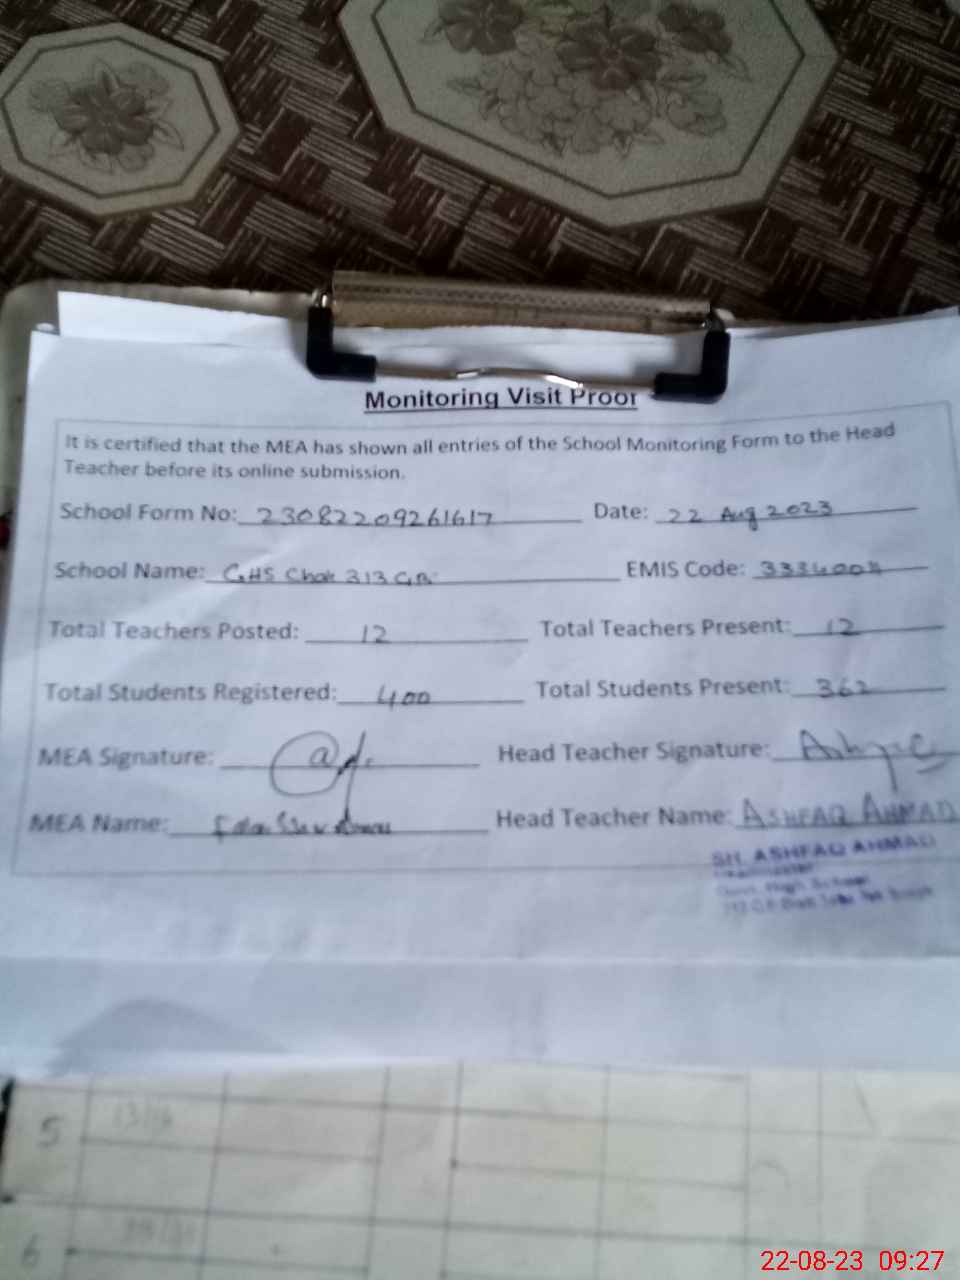 Monitoring Visit Proof
It is certified that the MEA has shown all entries of the School Monitoring Form to the Head
Teacher before its online submission.
School Form No: 23082209261617 Date: 22 Aug 2023
School Name: GHS Chak 313 GB EMIS Code:
Total Teachers Posted: 12 Total Teachers Present: 12
Total Students Registered: 400 Total Students Present: 362
MEA Signature: Head Teacher Signature:
MEA Name: Head Teacher Name: ASHFAQ AHMAD
SH. ASHFAQ AHMAD
Headmaster
Govt. High School
5
6
22-08-23 09:27